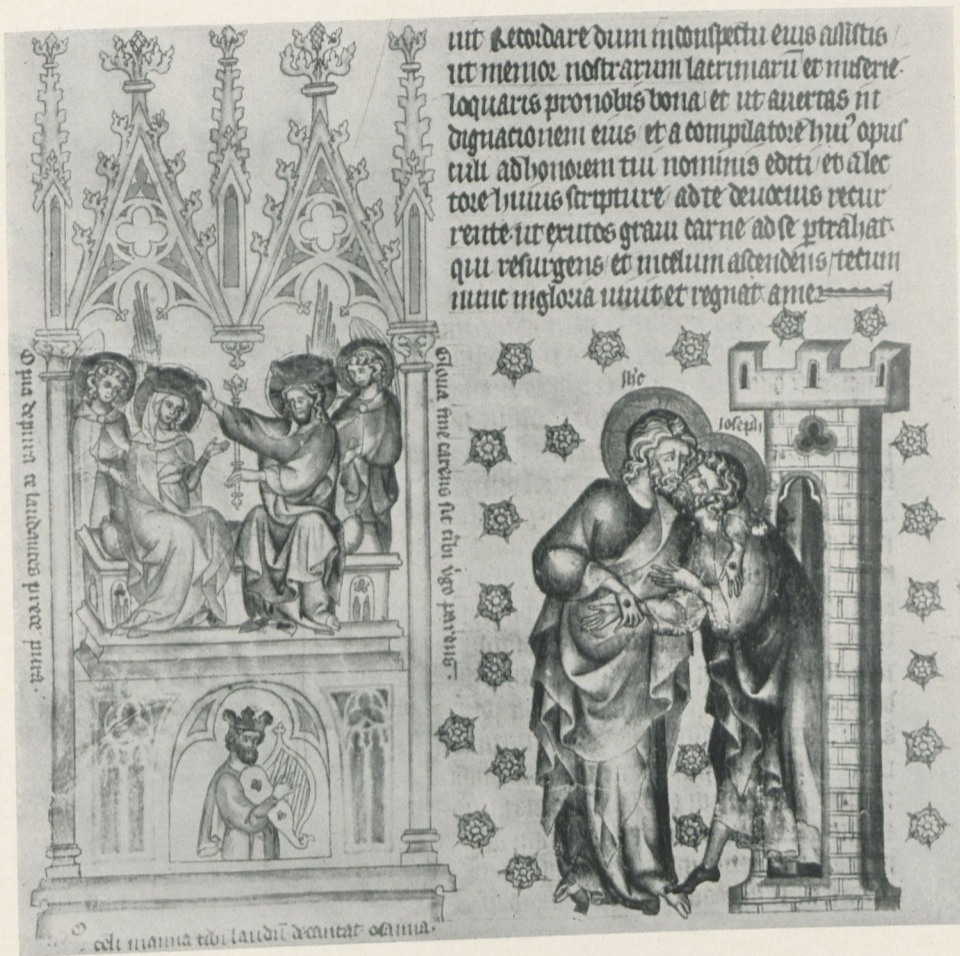 iut Recordare dum inconspectu eius assistis
ut memor nostrarum lacrimarū et miserie.
loquaris pronobis bona et ut auertas in
dignacionem eius et a compilatore huiꝰ opus
culi ad honorem tui nominis editi et a lec
tore huius scripture ad te deuocius recur
rente ut exutos graui carne ad se ꝑtrahat
qui resurgens et incelum ascendens tecum
nunc ingloria uiuit et regnat amen
O pia te laudantes prece pura.
Gloria fine carens sit tibi v̾go parens.
celi manna tibi laudū decantat osanna.
ih̄c
ioseph